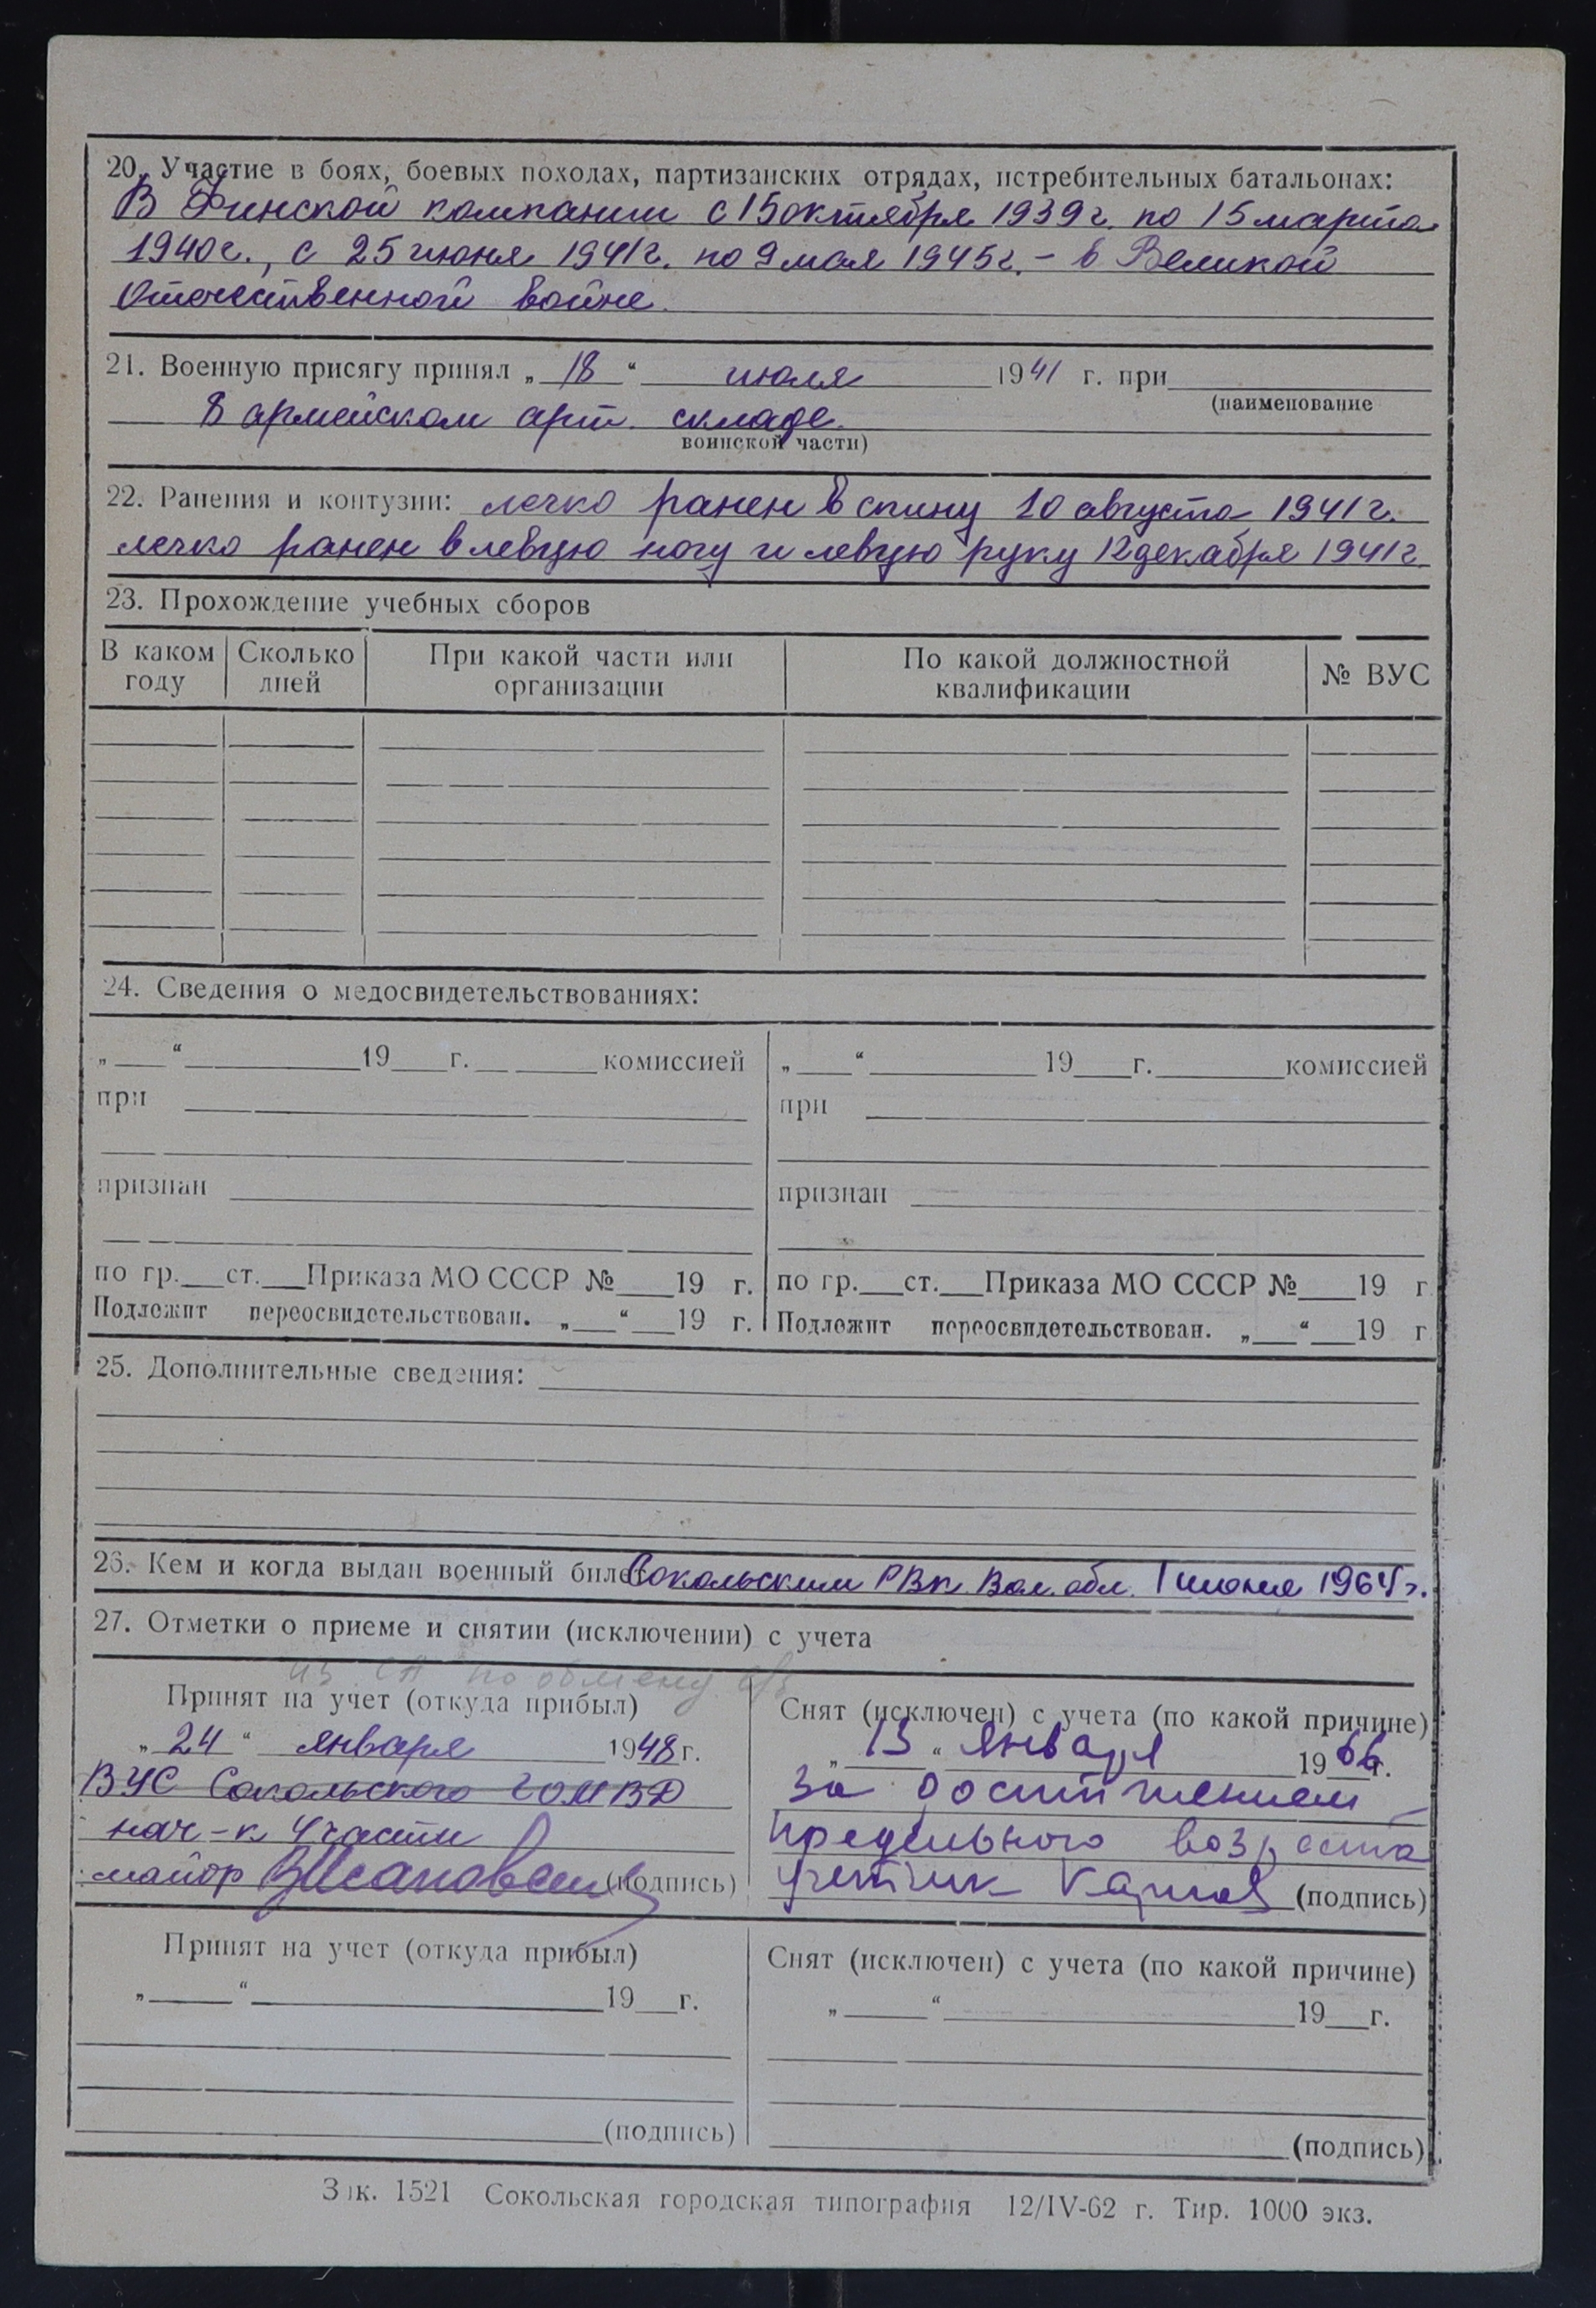 20. Участие в боях, боевых походах, партизанских отрядах, истребительных батальонах:
В Финской компании с 15 октября 1939 г. по 15 марта
1940 г., с 25 июня 1941 г. по 9 мая 1945 г. – в Великой
Отечественной войне.
21. Военную присягу принял „ 18 “ июля 1941 г. при
(наименование
8 армейском арт. складе.
воинской части)
22. Ранения и контузии: легко ранен в спину 10 августа 1941 г.
легко ранен в левую ногу и левую руку 12 декабря 1941 г.
23. Прохождение учебных сборов
В каком году Сколько дней При какой части или организации По какой должностной квалификации № ВУС
24. Сведения о медосвидетельствованиях:
„ “ 19 г. комиссией „ “ 19 г. комиссией
при при
признан признан
по гр. ст. Приказа МО СССР № 19 г. по гр. ст. Приказа МО СССР № 19 г
Подлежит переосвидетельствован. „ “ 19 г. Подлежит переосвидетельствован. „ “ 19 г
25. Дополнительные сведения:
26. Кем и когда выдан военный билет Сокольским РВК Вол. обл. 1 июня 1964 г.
27. Отметки о приеме и снятии (исключении) с учета
из СА по обмену в/б
Принят на учет (откуда прибыл)
„ 24 “ января 1948 г.
ВУС Сокольского ГОМВД
нач-к 4 части
майор (подпись)
Снят (исключен) с учета (по какой причине)
„ 13 “ Января 1966 г.
за достижением
предельного возраста
учетчик (подпись)
Принят на учет (откуда прибыл)
„ “ 19 г.
(подпись)
Снят (исключен) с учета (по какой причине)
„ “ 19 г.
(подпись)
Зак. 1521 Сокольская городская типография 12/IV-62 г. Тир. 1000 экз.